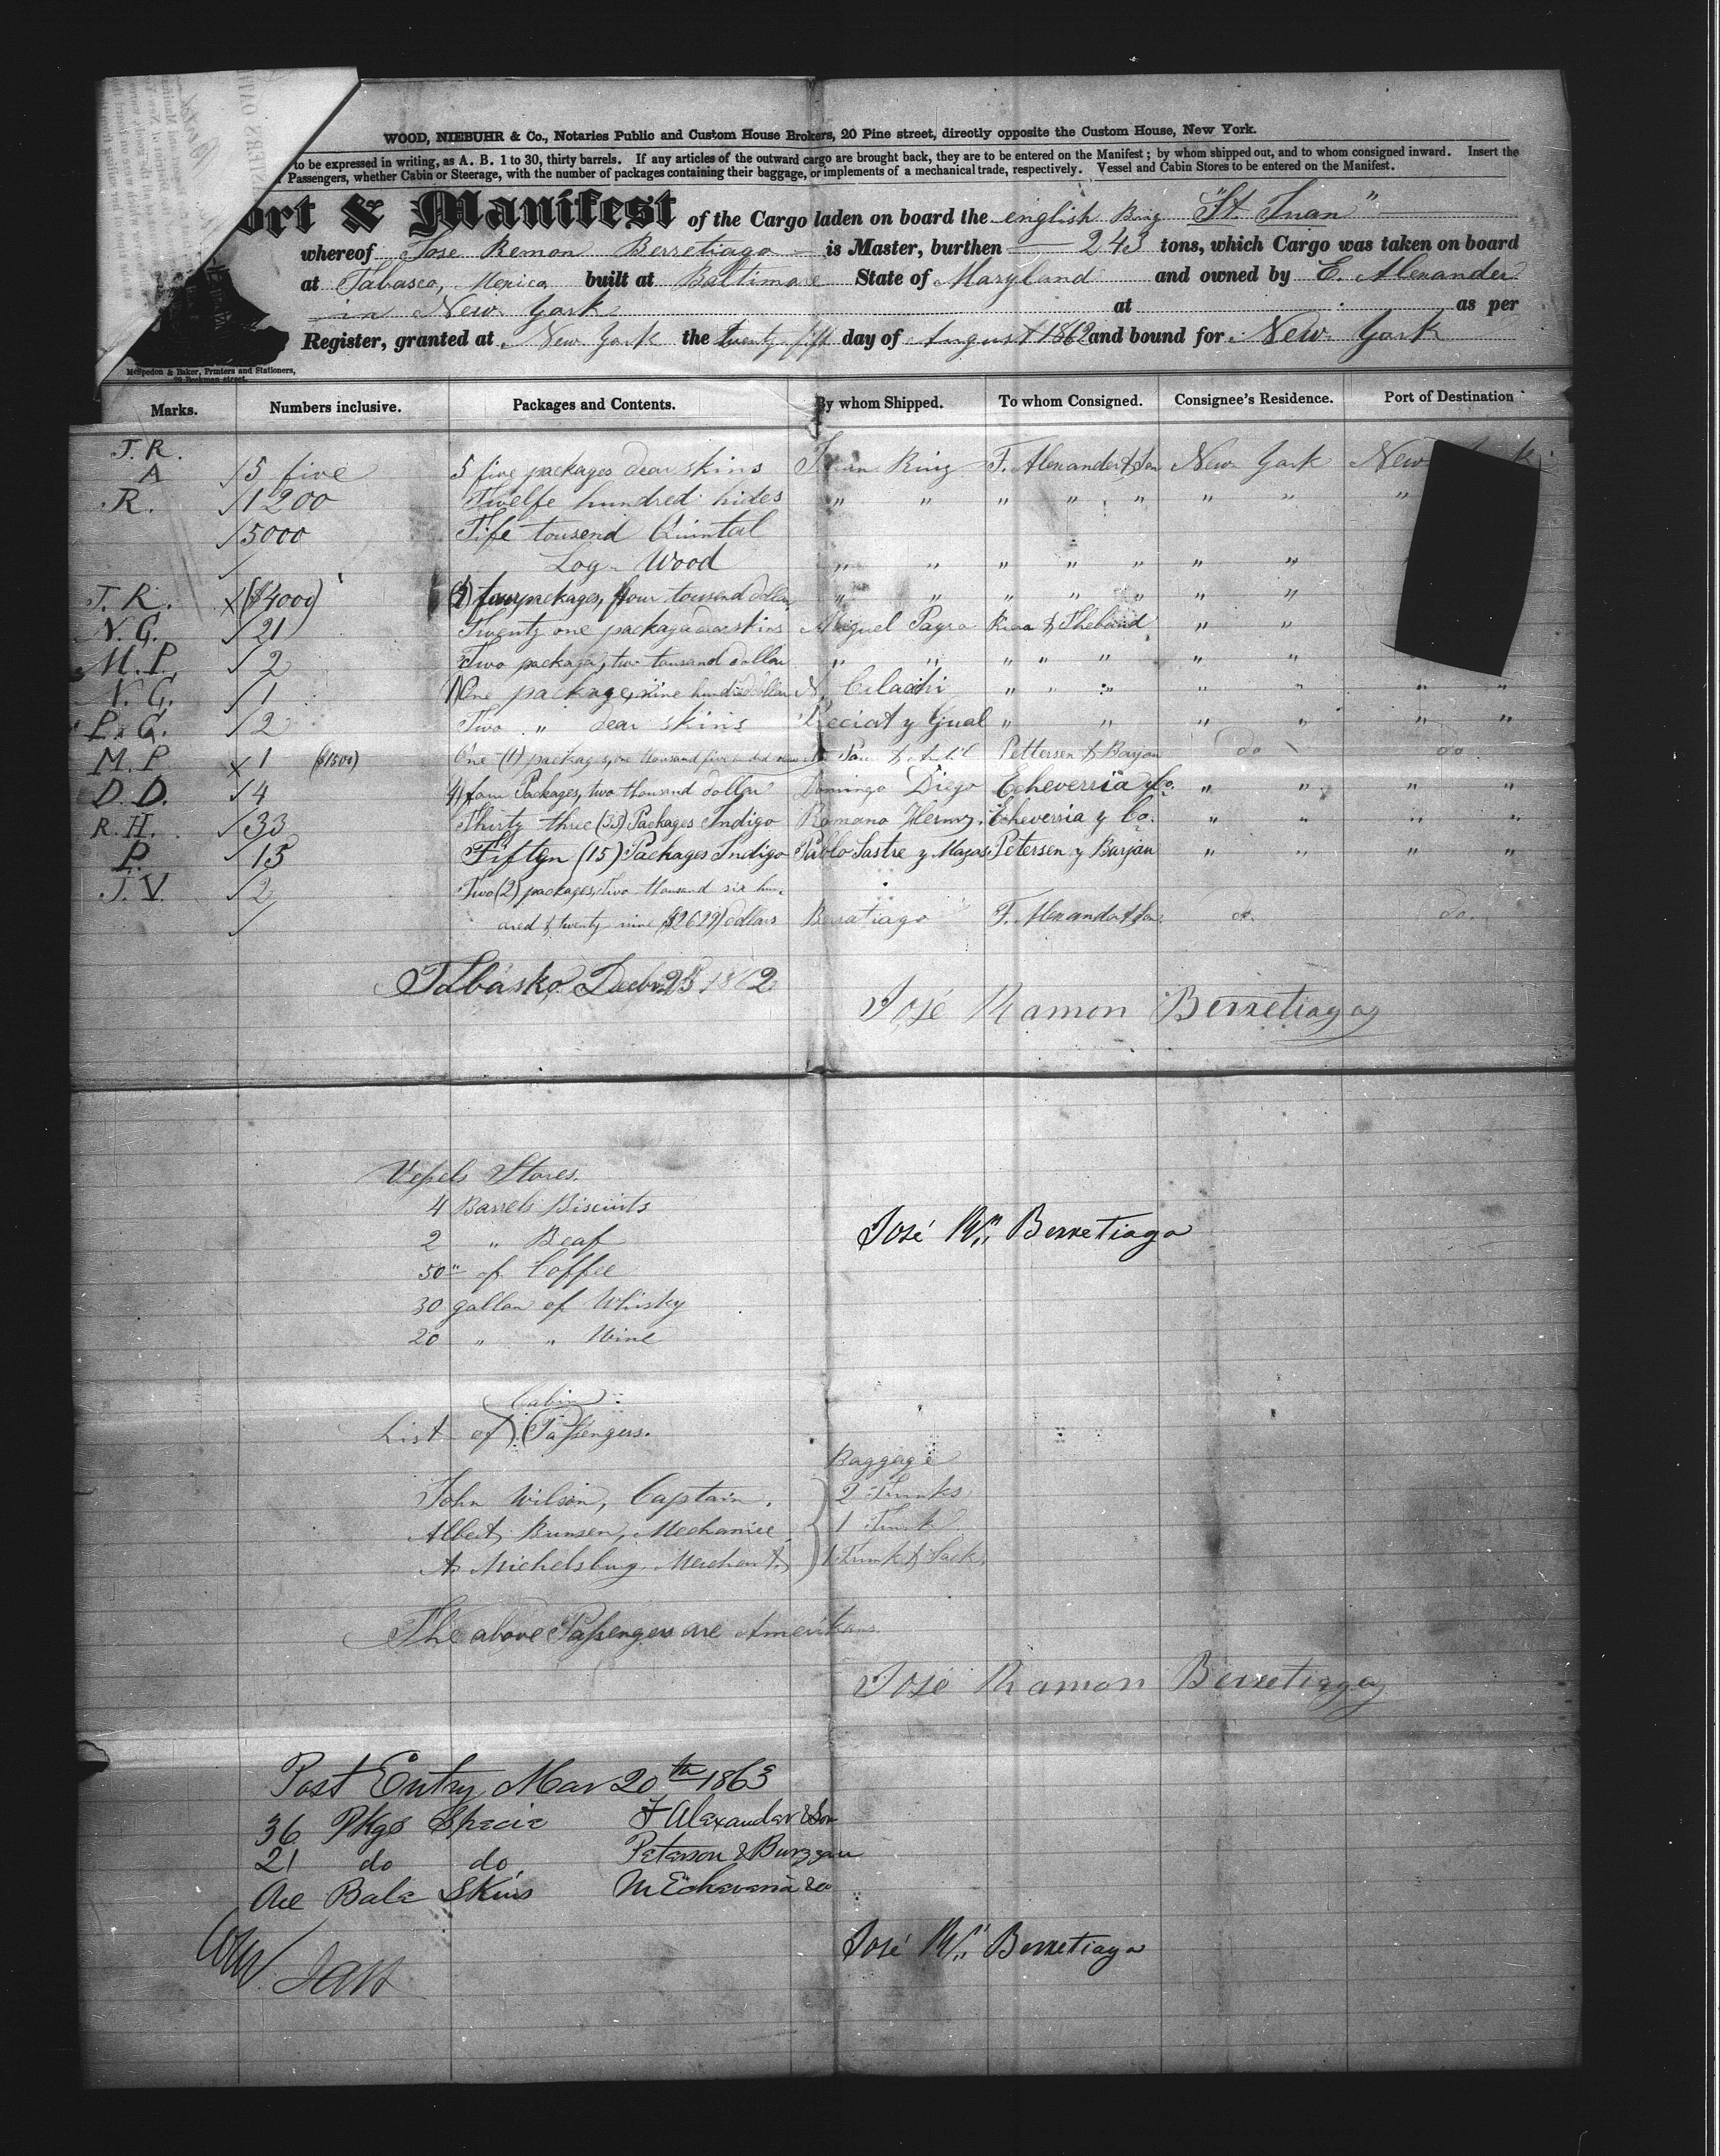 WOOD, NIEBUHR & Co., Notaries Public and Custom House Brokers, 20 Pine street, directly opposite the Custom House, New York.
to be expressed in writing, as A. B. 1 to 30, thirty barrels. If any articles of the outward cargo are brought back, they are to be entered on the Manifest; by whom shipped out, and to whom consigned inward. Insert the
Passengers, whether Cabin or Steerage, with the number of packages containing their baggage, or implements of a mechanical trade, respectively. Vessel and Cabin Stores to be entered on the Manifest.
ort & Manifest of the Cargo laden on board the english Brig "St. Juan"
whereof Jose Remon Berretiago is Master, burthen 243 tons, which Cargo was taken on board
at Tabasco, Mexico built at Baltimore State of Maryland and owned by E. Alexander
in New York at as per
Register, granted at New York the twenty fift day of August 1862 and bound for New York
McSpedon & Baker, Printers and Stationers,
29 Beekman street.
Marks. Numbers inclusive. Packages and Contents. By whom Shipped. To whom Consigned. Consignee's Residence. Port of Destination
J. R.
A /5 five 5 five packages dear skins Juan Ring F. Alexander & Son New York New
R. /1200 Twelfe hundred hides " " " " " " " "
/5000 Fife tousend Quintal
/ Log Wood " " " " " " "
J. R. x($4000) (4) four packages, four tousend dollar " " " " " " "
N. G. /21 Twenty one packaga dear skins Miguel Payro & Thebaud " "
M. P. /2 Two packages, two tousand dollar " " " " " " "
N. G. /1 (1) One package, nine hundred dollar N. " " " " " " "
P. G. /2 Two " dear skins Preciat y Gual " " " " " "
M. P. x1 ($1500) One (1) package, one thousand five hundred Pettersen & Barjan do do
D. D. /4 4) four Packages, two thousand dollar Domingo Diego Echeverria & Co. " " " "
R. H. /33 Thirty three (33) Packages Indigo Romano Hermz. Echeverria y Co. " " " "
P. /15 Fiften (15) Packages Indigo Pablo Sastre y Mazas Petersen y Barjan " " " "
J. V. /2 Two (2) packages, Two thousand six hun-
/ dred & twenty nine ($2629) dollars Berratiago F. Alexander & Son do. do.
Tabasko Decbr. 23 1862
José Ramon Berretiaga
Vessels Stores.
4 Barrels Biscuits
2 " Beaf José Rn. Berretiaga
50" of Coffee
30 gallon of Whisky
20 " " Wine
Cabin
List of Passengers.
Baggage
John Wilson, Captain, 2 Trunks
Albert Bunsen, Mechanice, 1 Trunk
A. Michelsburg Merchant, 1 Trunk & Sack.
The above Passengers are Amerikans.
José Ramon Berretiaga
Post Entry Mar 20th 1863
36 Pkgs Specie F Alexander & Son
21 do do Peterson & Burzzau
One Bale Skins M Echevaria & Co
José Rn. Berretiaga